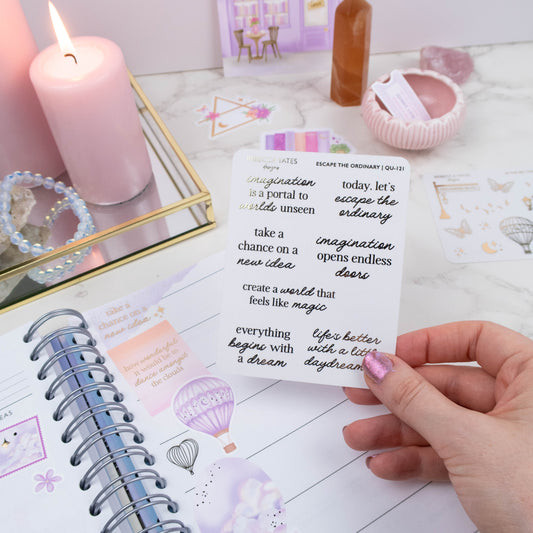 YATES
designs
ESCAPE THE ORDINARY | QU-121
imagination
is a portal to
worlds unseen
today, let's
escape the
ordinary
take a
chance on a
new idea
imagination
opens endless
doors
create a world that
feels like magic
everything
begins with
a dream
life's better
with a little
daydream
take a
chance on a
new idea
how wonderful
it would be to
dance amongst
the clouds
EAS